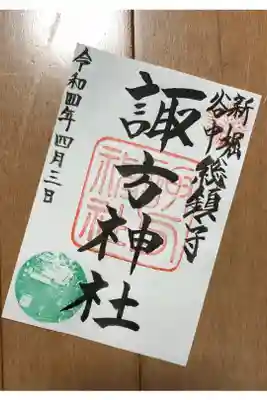 新堀
谷中
総鎮守
諏方神社
令和四年四月三日